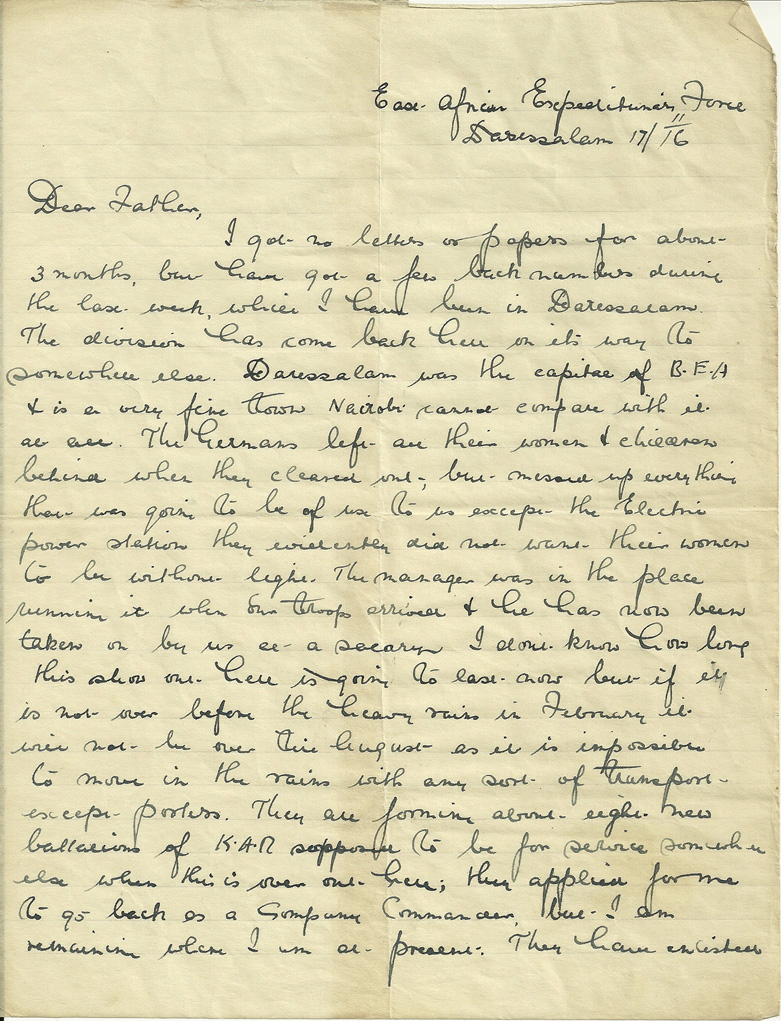 East African Expeditionary Force
Daressalam 17/11/16
Dear Father,
I got no letters or papers for about
3 months, but have got a few back numbers during
the last week, while I have been in Daressalam.
The division has come back here on its way to
somewhere else. Daressalam was the capital of B.E.A
& is a very fine town Nairobi cannot compare with it
at all. The Germans left all their women & children
behind when they cleared out, but messed up everything
that was going to be of use to us except the Electric
power station they evidently did not want their women
to be without light. The manager was in the place
running it when our troops arrived & he has now been
taken on by us at a salary. I dont know how long
this show out here is going to last now but if it
is not over before the heavy rains in February it
will not be over till August as it is impossible
to move in the rains with any sort of transport
except porters. They are forming about eight new
battalions of K.A.R supposed to be for service somewhere
else when this is over out here; they applied for me
to go back as a Company Commander, but I am
remaining where I am at present. They have enlisted